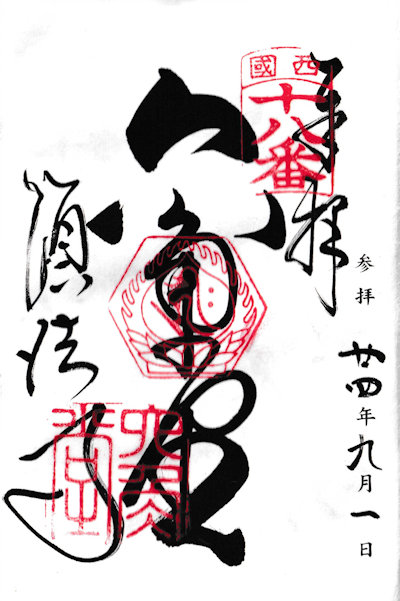 西國
十八番
奉拝
参拝
廿四年九月一日
六角堂
頂法寺
六角堂